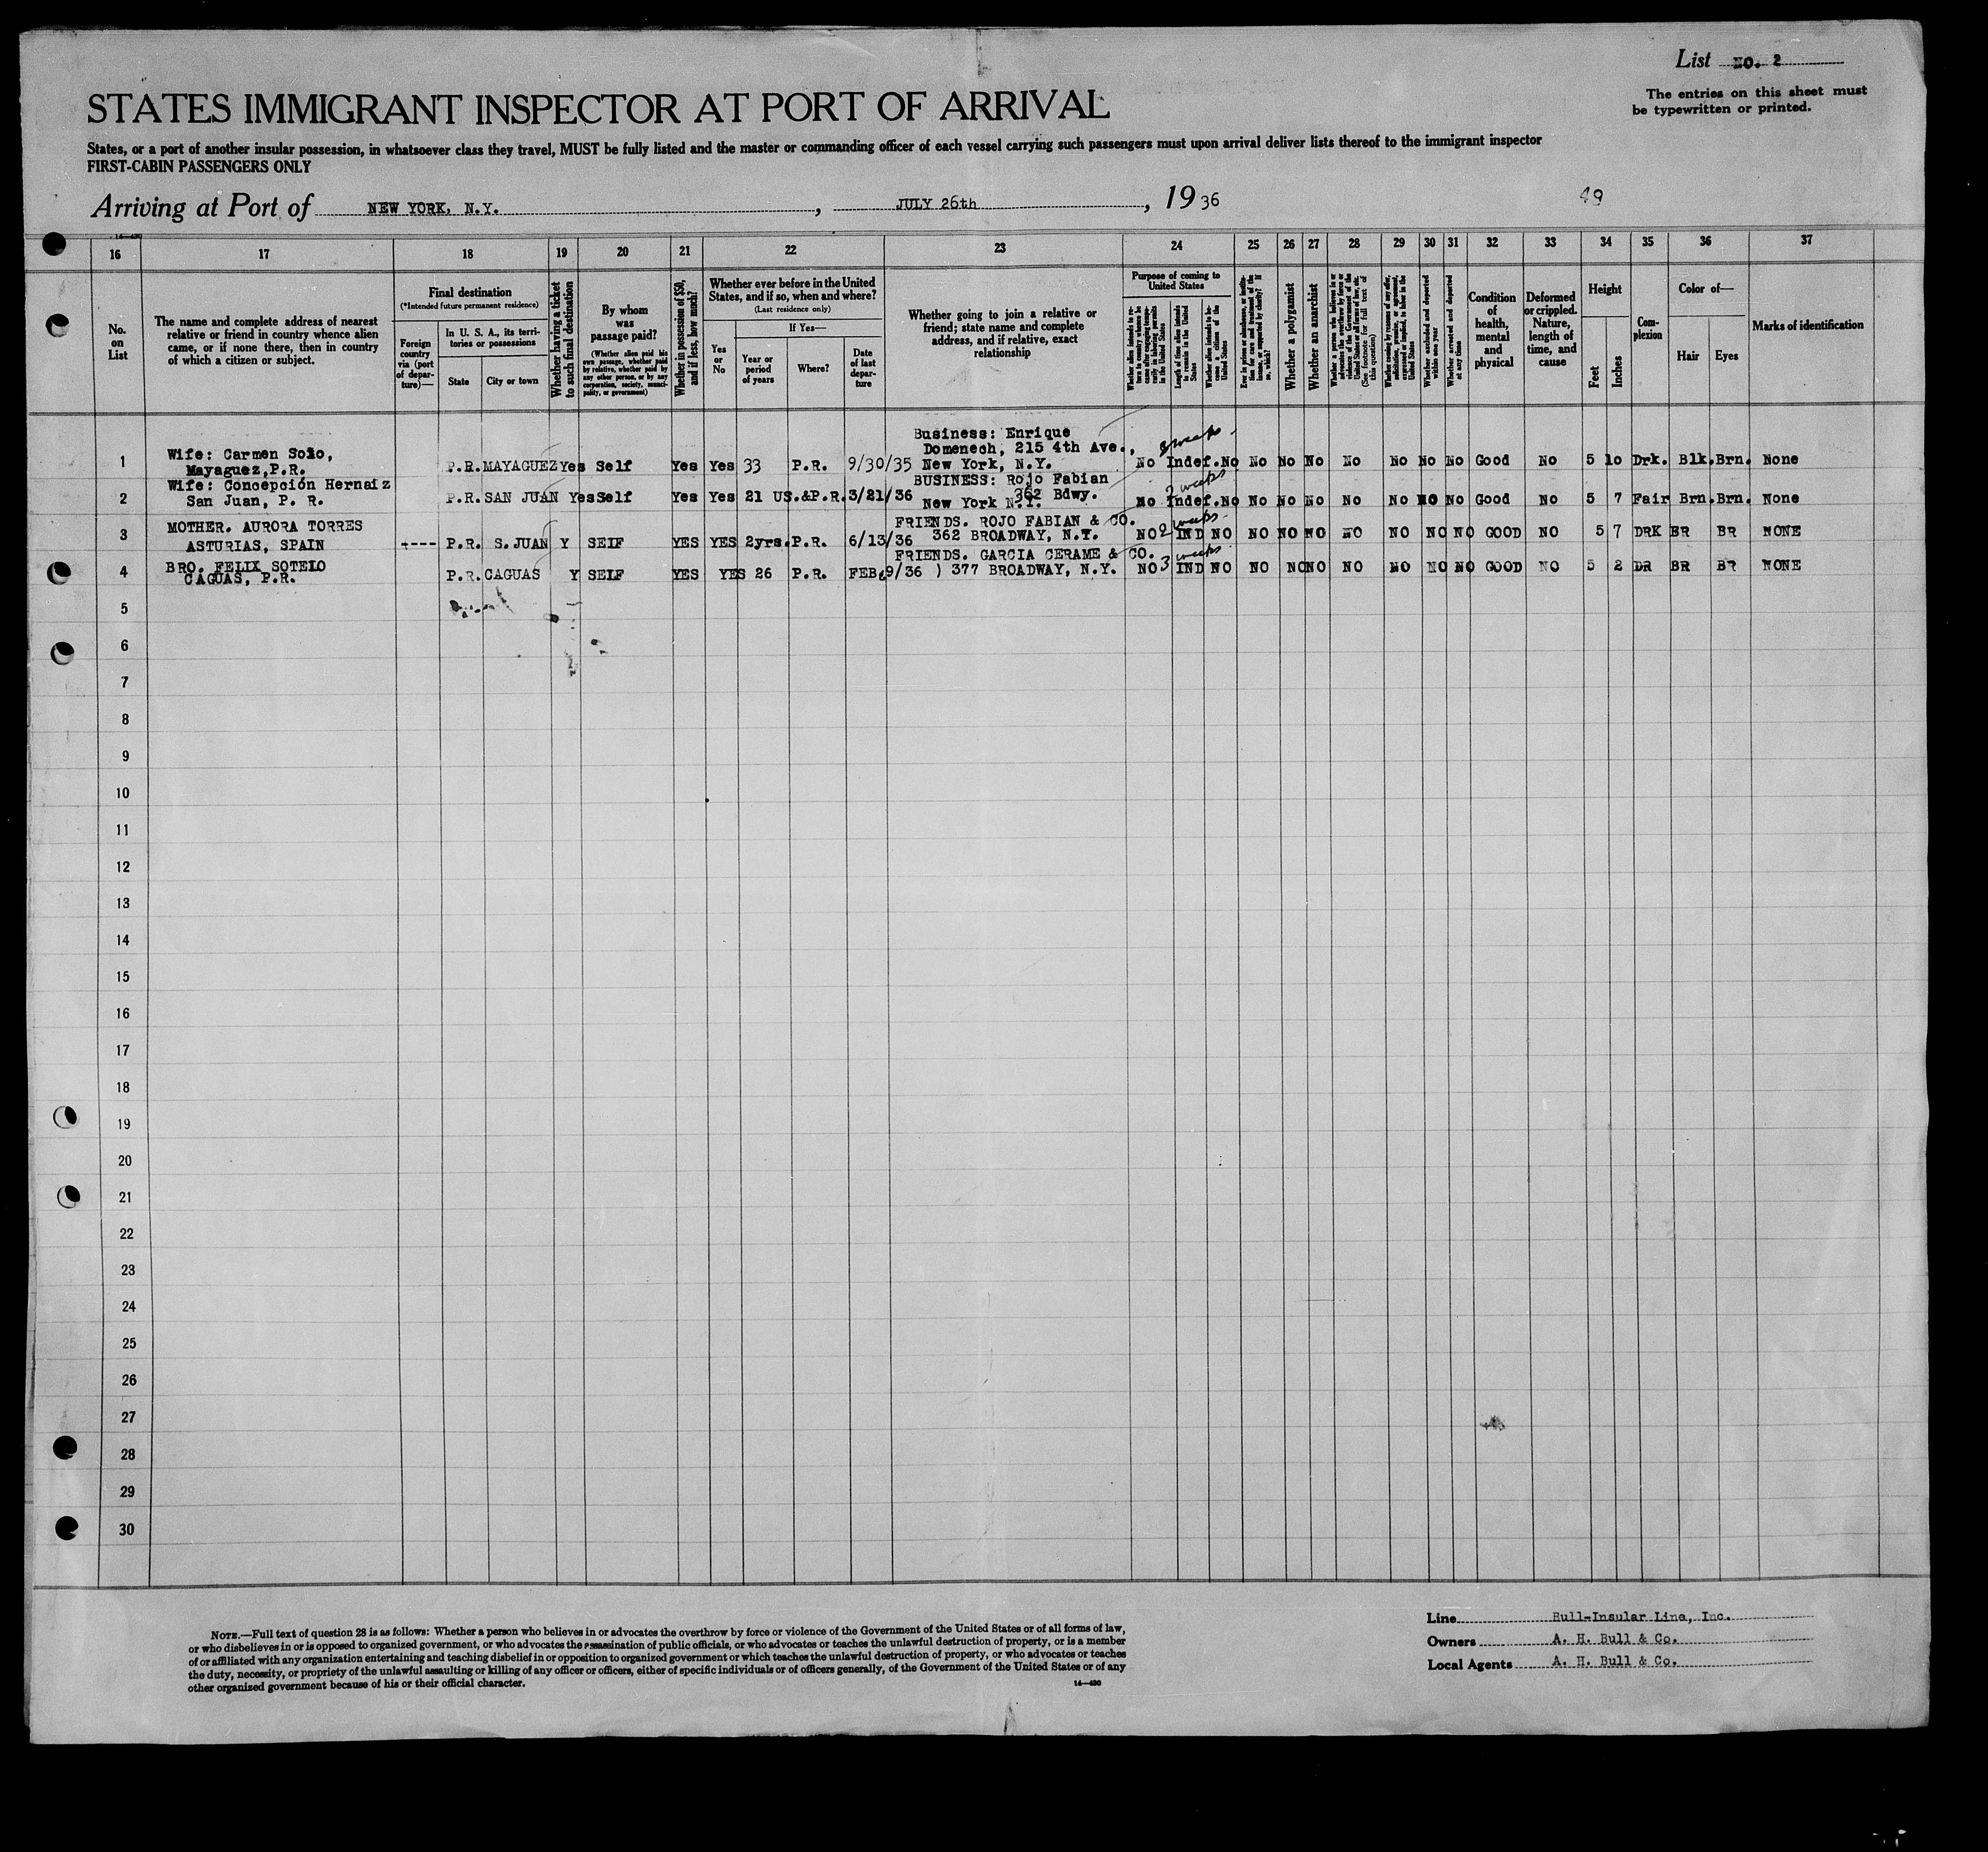 List NO. 2
The entries on this sheet must
be typewritten or printed.
STATES IMMIGRANT INSPECTOR AT PORT OF ARRIVAL
States, or a port of another insular possession, in whatsoever class they travel, MUST be fully listed and the master or commanding officer of each vessel carrying such passengers must upon arrival deliver lists thereof to the immigrant inspector
FIRST-CABIN PASSENGERS ONLY
Arriving at Port of NEW YORK, N.Y., JULY 26th, 1936
49
14—430
16 17 18 19 20 21 22 23 24 25 26 27 28 29 30 31 32 33 34 35 36 37
No.
on
List
The name and complete address of nearest
relative or friend in country whence alien
came, or if none there, then in country
of which a citizen or subject.
Final destination
(*Intended future permanent residence)
Foreign
country
via (port
of depar-
ture)—
In U. S. A., its terri-
tories or possessions
State
City or town
Whether having a ticket
to such final destination
By whom
was
passage paid?
(Whether alien paid his
own passage, whether paid
by relative, whether paid by
any other person, or by any
corporation, society, munici-
pality, or government)
Whether in possession of $50,
and if less, how much?
Whether ever before in the United
States, and if so, when and where?
(Last residence only)
Yes
or
No
If Yes—
Year or
period
of years
Where?
Date
of last
depar-
ture
Whether going to join a relative or
friend; state name and complete
address, and if relative, exact
relationship
Purpose of coming to
United States
Length of time alien intends
to remain in the United
States
Whether alien intends to be-
come a citizen of the
United States
Whether a polygamist
Whether an anarchist
(See footnote for full text of
this question)
Whether excluded and deported
within one year
Whether arrested and deported
at any time
Condition
of
health,
mental
and
physical
Deformed
or crippled.
Nature,
length of
time, and
cause
Height
Feet
Inches
Com-
plexion
Color of—
Hair
Eyes
Marks of identification
1 Wife: Carmen Solo,
Mayaguez,P.R. P.R. MAYAGUEZ Yes Self Yes Yes 33 P.R. 9/30/35
Business: Enrique
Domenech, 215 4th Ave.,
New York, N.Y. No Indef. No No No No No No No No Good No 5 10 Drk. Blk. Brn. None
weeks
2 Wife: Concepción Hernaiz
San Juan, P. R. P.R. SAN JUAN Yes Self Yes Yes 21 US.&P.R. 3/21/36
BUSINESS: Rojo Fabian
362 Bdwy.
New York N.Y. No Indef. No No No No No No NO No Good No 5 7 Fair Brn. Brn. None
2 weeks
3 MOTHER. AURORA TORRES
ASTURIAS, SPAIN ---- P.R. S.JUAN Y SELF YES YES 2yrs. P.R. 6/13/36
FRIENDS. ROJO FABIAN & CO.
362 BROADWAY, N.Y. NO IND NO NO NO NO NO NO NO NO GOOD NO 5 7 DRK BR BR NONE
2 weeks
4 BRO. FELIX SOTELO
CAGUAS, P.R. P.R. CAGUAS Y SELF YES YES 26 P.R. FEB. 9/36
FRIENDS. GARCIA CERAME & CO.
) 377 BROADWAY, N.Y. NO IND NO NO NO NO NO NO NO NO GOOD NO 5 2 DR BR BR NONE
3 weeks
5
6
7
8
9
10
11
12
13
14
15
16
17
18
19
20
21
22
23
24
25
26
27
28
29
30
NOTE.—Full text of question 28 is as follows: Whether a person who believes in or advocates the overthrow by force or violence of the Government of the United States or of all forms of law,
or who disbelieves in or is opposed to organized government, or who advocates the assassination of public officials, or who advocates or teaches the unlawful destruction of property, or is a member
of or affiliated with any organization entertaining and teaching disbelief in or opposition to organized government or which teaches the unlawful destruction of property, or who advocates or teaches
the duty, necessity, or propriety of the unlawful assaulting or killing of any officer or officers, either of specific individuals or of officers generally, of the Government of the United States or of any
other organized government because of his or their official character.
14—430
Line Bull-Insular Line, Inc.
Owners A. H. Bull & Co.
Local Agents A. H. Bull & Co.